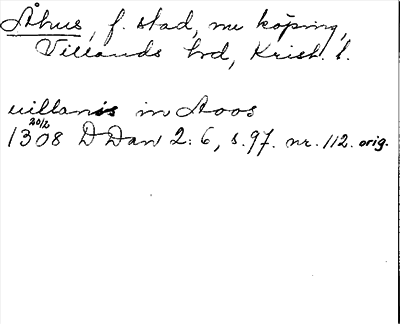 Åhus, f. stad, nu köping,
Villands hd, Krist. l.
uillanis in Aoos
20/2
1308 D Dan 2:6, s.97. nr. 112. orig.